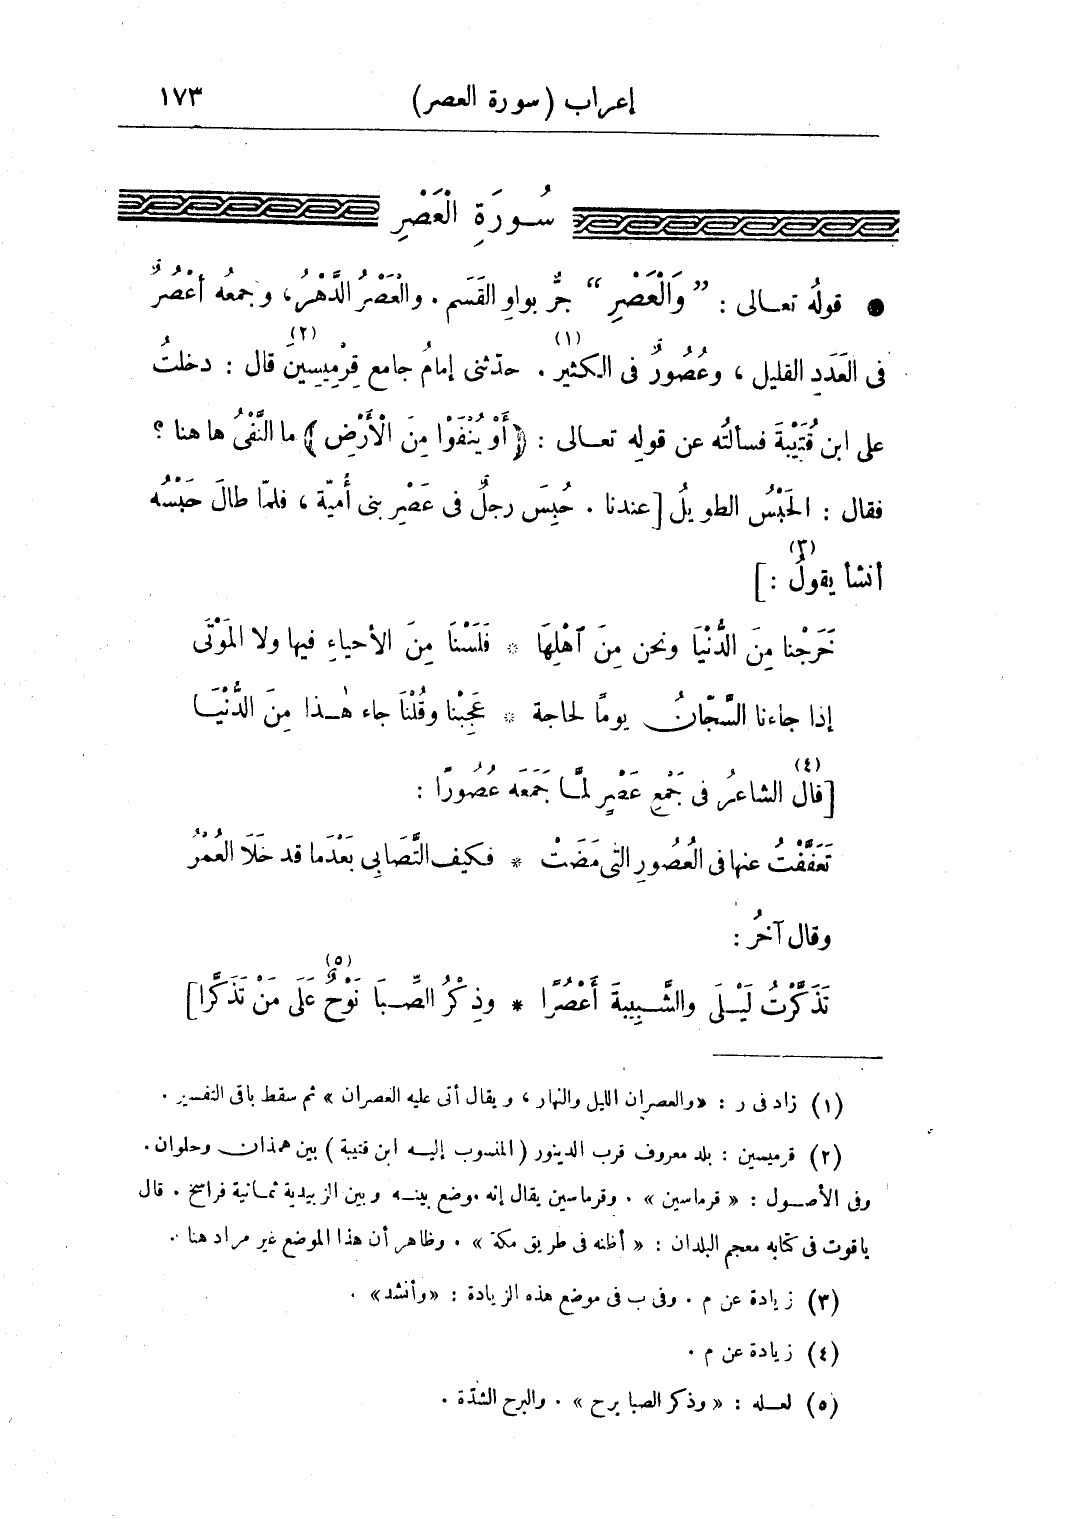 إعراب (سورة العصر) ١٧٣
سُورَةِ الْعَصْرِ
• قولُه تعالى : ”وَالْعَصْرِ“ جرٌّ بواوِ القَسَم . والعَصْرُ الدَّهْرُ، وجمعُه أعْصُرٌ
فى العَدَدِ القليل ، وعُصُورٌ فى الكثير (١) . حدّثنى إمامُ جامع قِرْمِيسِينَ (٢) قال : دخلتُ
على ابن قُتَيْبَةَ فسألتُه عن قولِه تعالى : ﴿أَوْ يُنْفَوْا مِنَ الْأَرْضِ﴾ ما النَّفْىُ ها هنا ؟
فقال : الحَبْسُ الطويلُ [عندنا . حُبِسَ رجلٌ فى عَصْرِ بنى أُميّة ، فلمّا طالَ حَبْسُه
أنشأ يقولُ (٣) :]
خَرَجْنا مِنَ الدُّنْيَا ونحن مِنَ آهْلِهَا * فَلَسْنَا مِنَ الأحياءِ فيها ولا المَوْتَى
إذا جاءنا السَّجّانُ يومًا لحاجة * عَجِبْنا وقُلْنَا جاء هٰذا مِنَ الدُّنْيَا
[قال (٤) الشاعرُ فى جَمْعِ عَصْرٍ لمَّا جَمَعَه عُصُورًا :
تَعَفَّفْتُ عنها فى العُصُورِ التى مَضَتْ * فكيف التَّصَابِى بَعْدَما قد خَلَا العُمْرُ
وقال آخَرُ :
تَذَكَّرْتُ لَيْلَى والشَّبِيبةَ أَعْصُرًا * وذِكْرُ الصِّبَا نَوْحٌ (٥) عَلَى مَنْ تَذَكَّرا]
(١) زاد فى ر : «والعصران الليل والنهار ، ويقال أتى عليه العصران » ثم سقط باقى التفسير .
(٢) قرميسين : بلد معروف قرب الدينور (المنسوب إليه ابن قتيبة) بين همذان وحلوان .
وفى الأصول : « قرماسين » . وقرماسين يقال إنه موضع بينه وبين الزبيدية ثمانية فراسخ . قال
ياقوت فى كتابه معجم البلدان : « أظنه فى طريق مكة » . وظاهر أن هذا الموضع غير مراد هنا .
(٣) زيادة عن م . وفى ب فى موضع هذه الزيادة : «وأنشد» .
(٤) زيادة عن م .
(٥) لعله : « وذكر الصبا برح » . والبرح الشدّة .